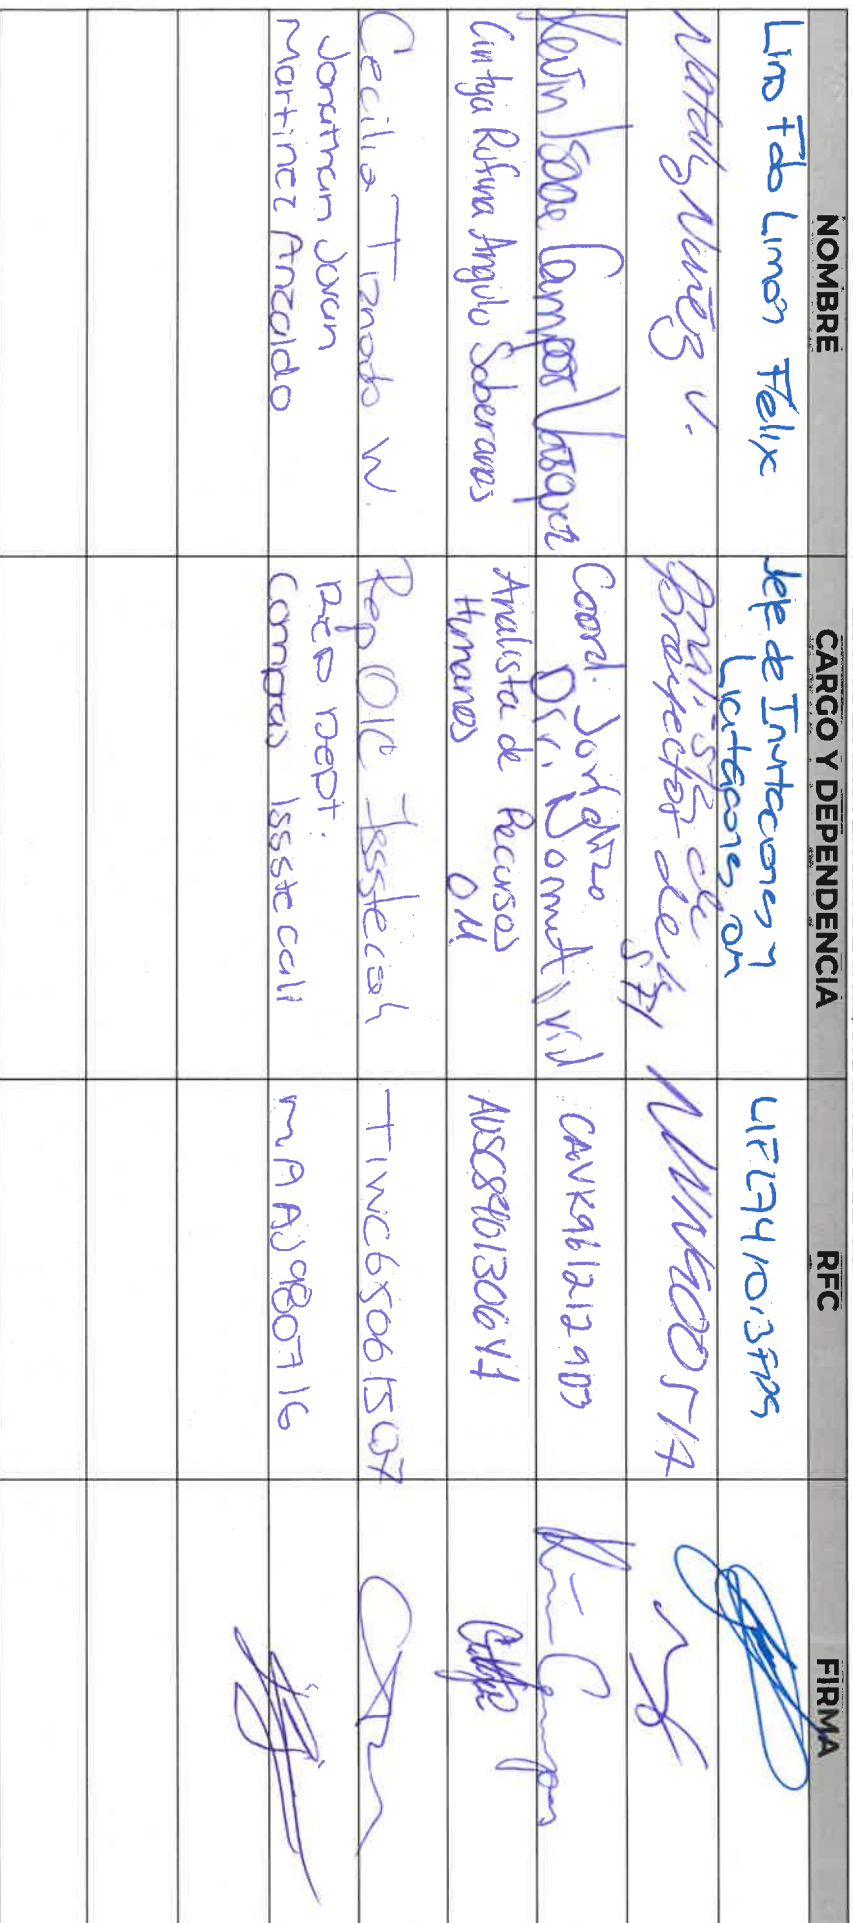 NOMBRE CARGO Y DEPENDENCIA RFC FIRMA
Lino Fdo Limón Felix
Jefe de Invitaciones y
Licitaciones OM
LIFL741013
Nataly Nuñez V.
Analista de
Proyectos de
Kevin Isaac Campos Vasquez
Coord. Jurídico
Dir.
CAVK961212903
Cintya Rufina Angulo Soberanes
Analista de Recursos
Humanos O.M.
AUSC8901306Y1
Cecilia Tiznado W.
Rep OIC Issstecali
TIWC650615Q7
Jonathan Jovan
Martinez Anzaldo
Dept.
Compras Issstecali
MAAJ980716